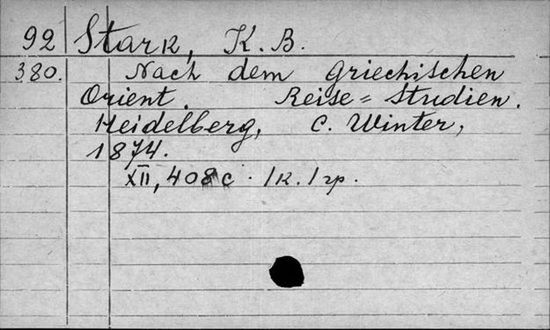 92 Stark, K. B.
380. Nach dem Griechischen
Orient. Reise=Studien.
Heidelberg, C. Winter,
1874.
XII, 408 c. 1 к. 1 гр.